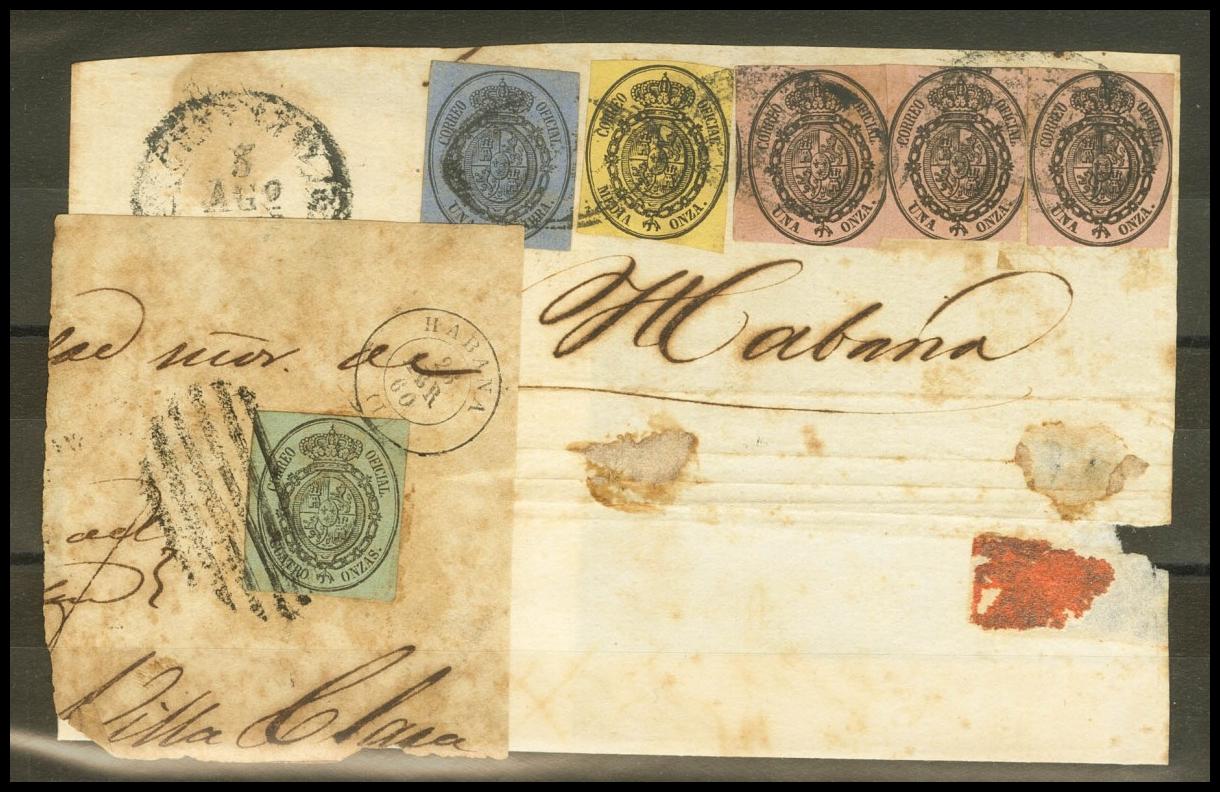 5
AGO
CORREO OFICIAL.
UNA LIBRA.
CORREO OFICIAL.
MEDIA ONZA.
CORREO OFICIAL.
UNA ONZA.
CORREO OFICIAL.
UNA ONZA.
CORREO OFICIAL.
UNA ONZA.
Habana
HABANA
60
mor. de
CORREO OFICIAL.
CUATRO ONZAS.
Villa Clara